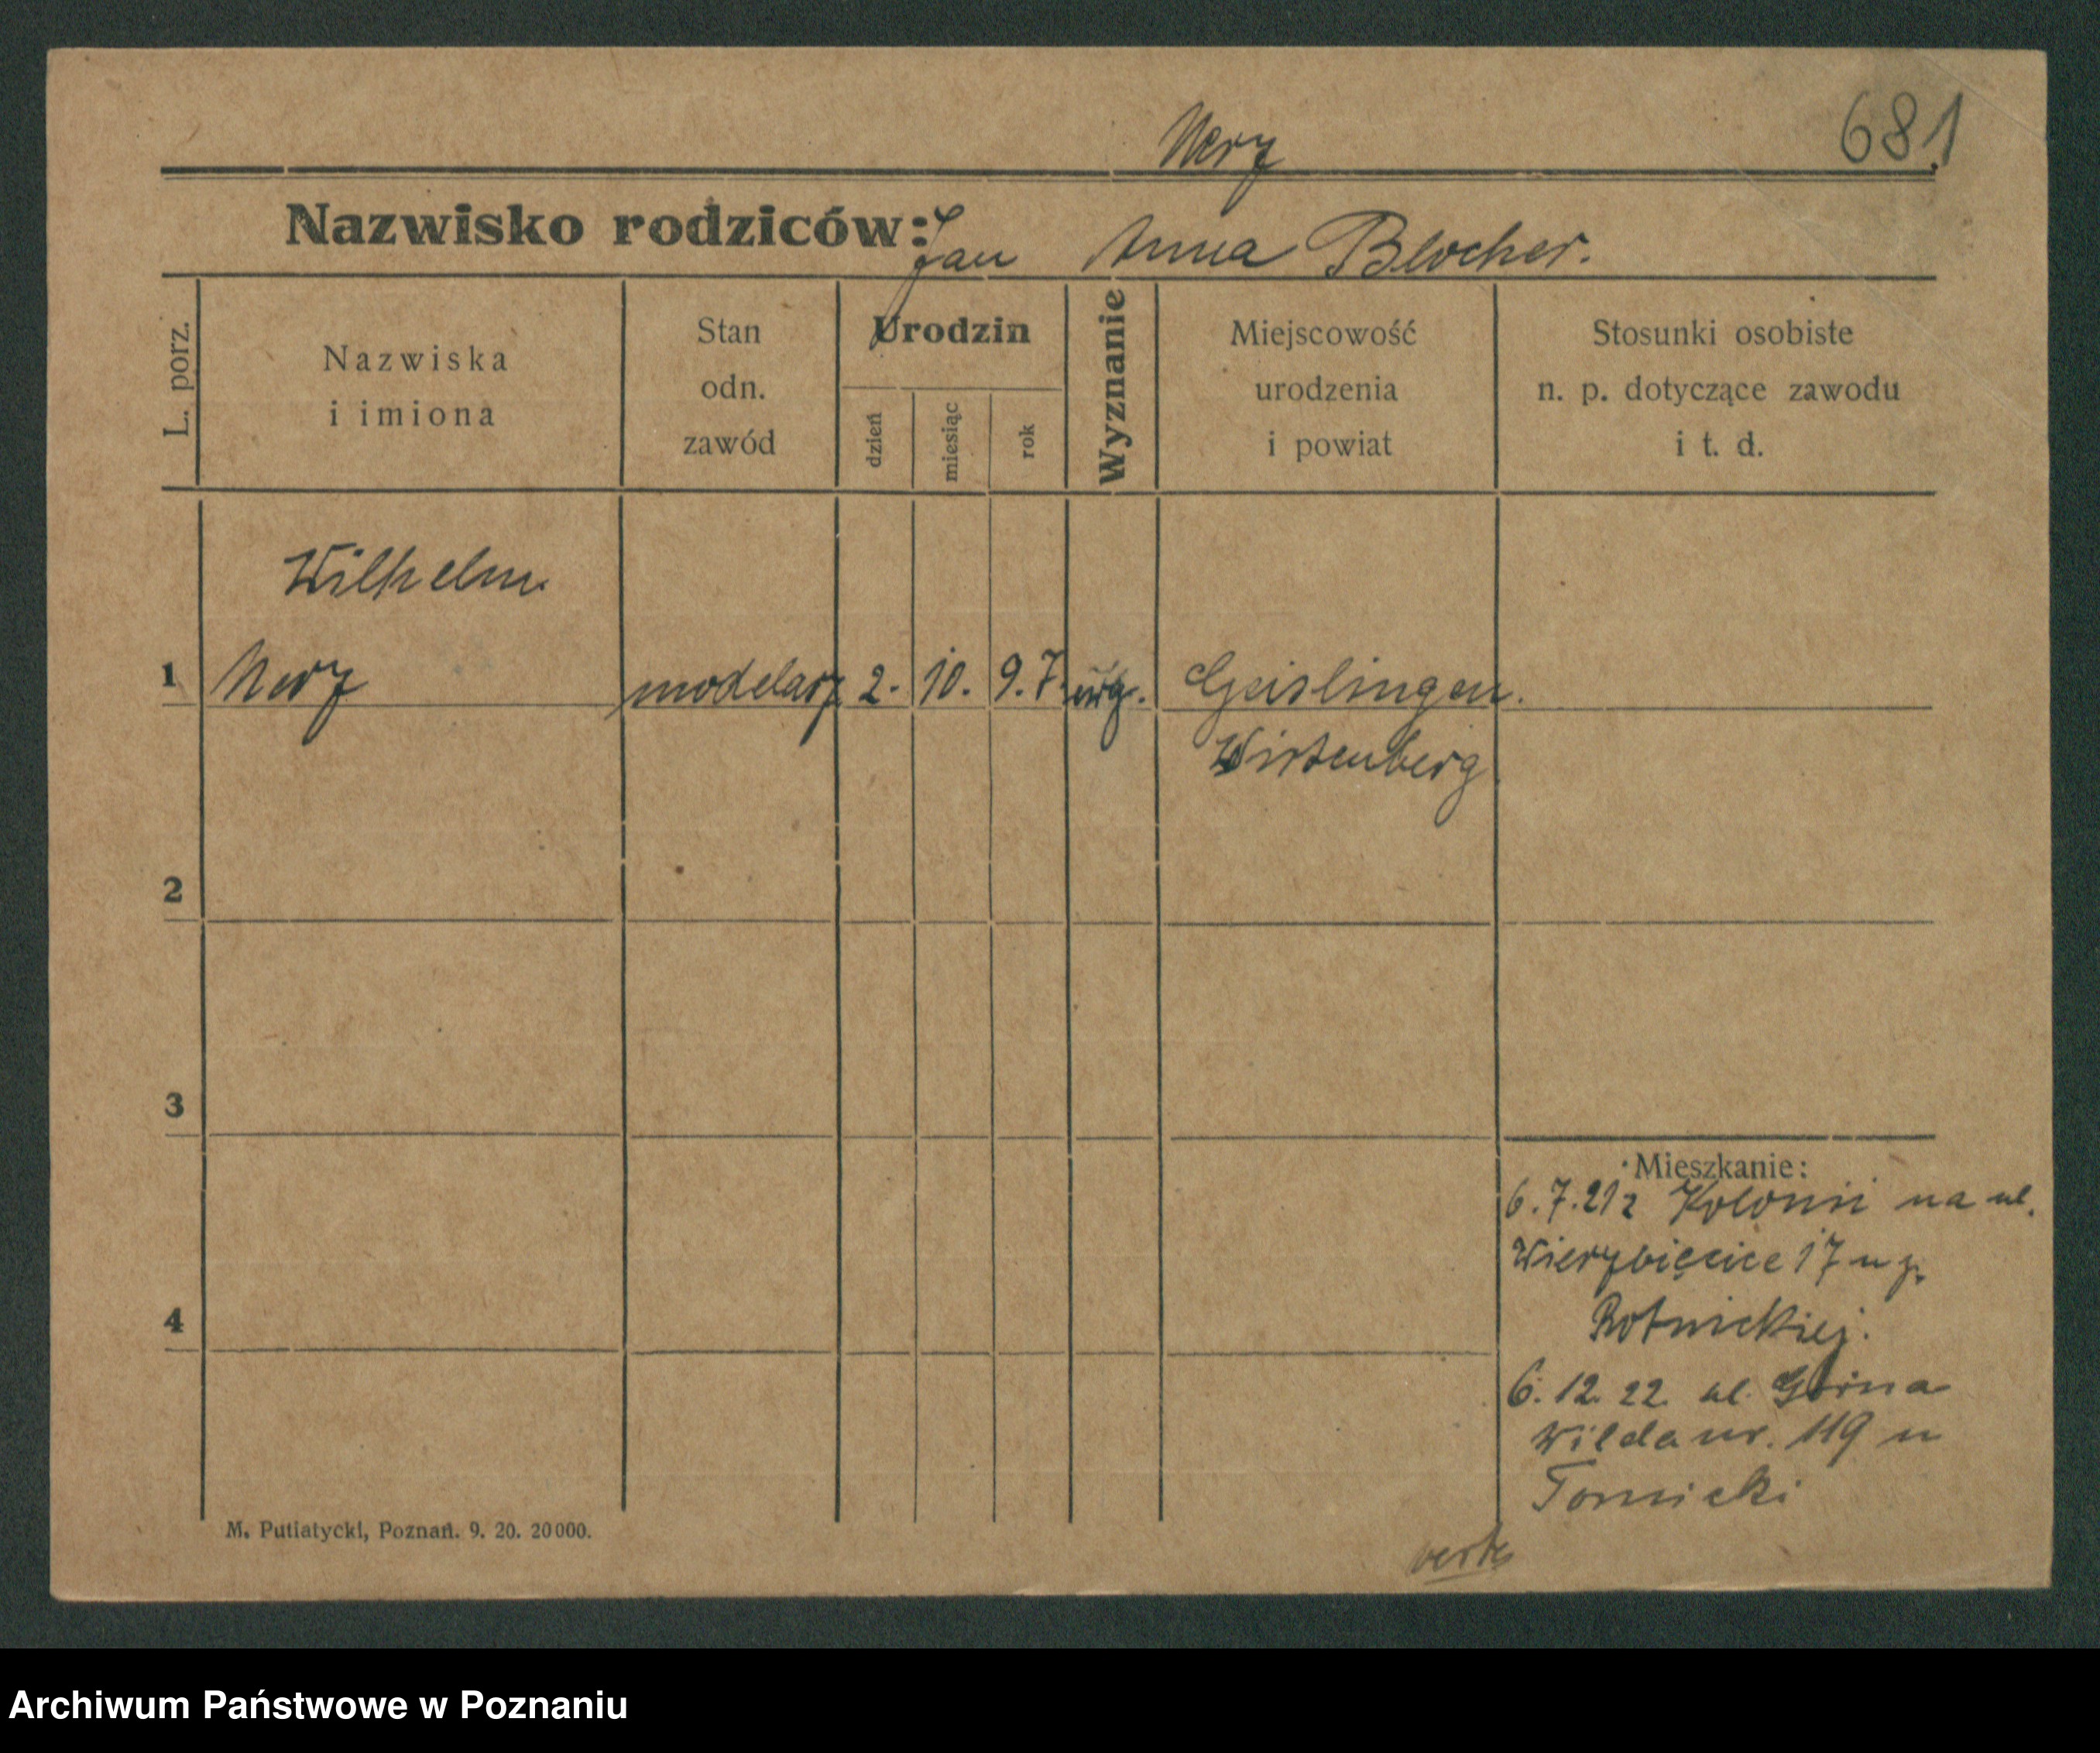 Nerz
681
Nazwisko rodziców: Jan Anna Blocher.
L. porz.
Nazwiska
i imiona
Stan
odn.
zawód
Urodzin
dzień
miesiąc
rok
Wyznanie
Miejscowość
urodzenia
i powiat
Stosunki osobiste
n. p. dotyczące zawodu
i t. d.
Wilhelm
1 Nerz modelarz 2. 10. 9.7. Geislingen.
Wirtenberg
2
3
4
Mieszkanie:
6.7.21 z Kolonii na ul.
Wierzbięcice 17 u p.
Rotnickiej.
6. 12. 22. ul. Górna
Wilda nr. 119 u
Tomicki
verte
M. Putiatycki, Poznań. 9. 20. 20000.
Archiwum Państwowe w Poznaniu